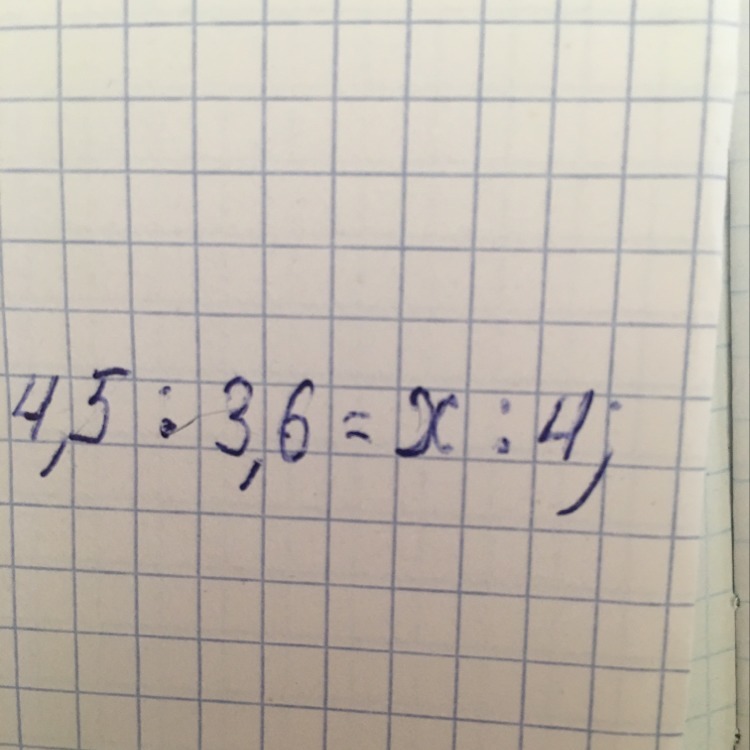 4,5 : 3,6 = x : 4;